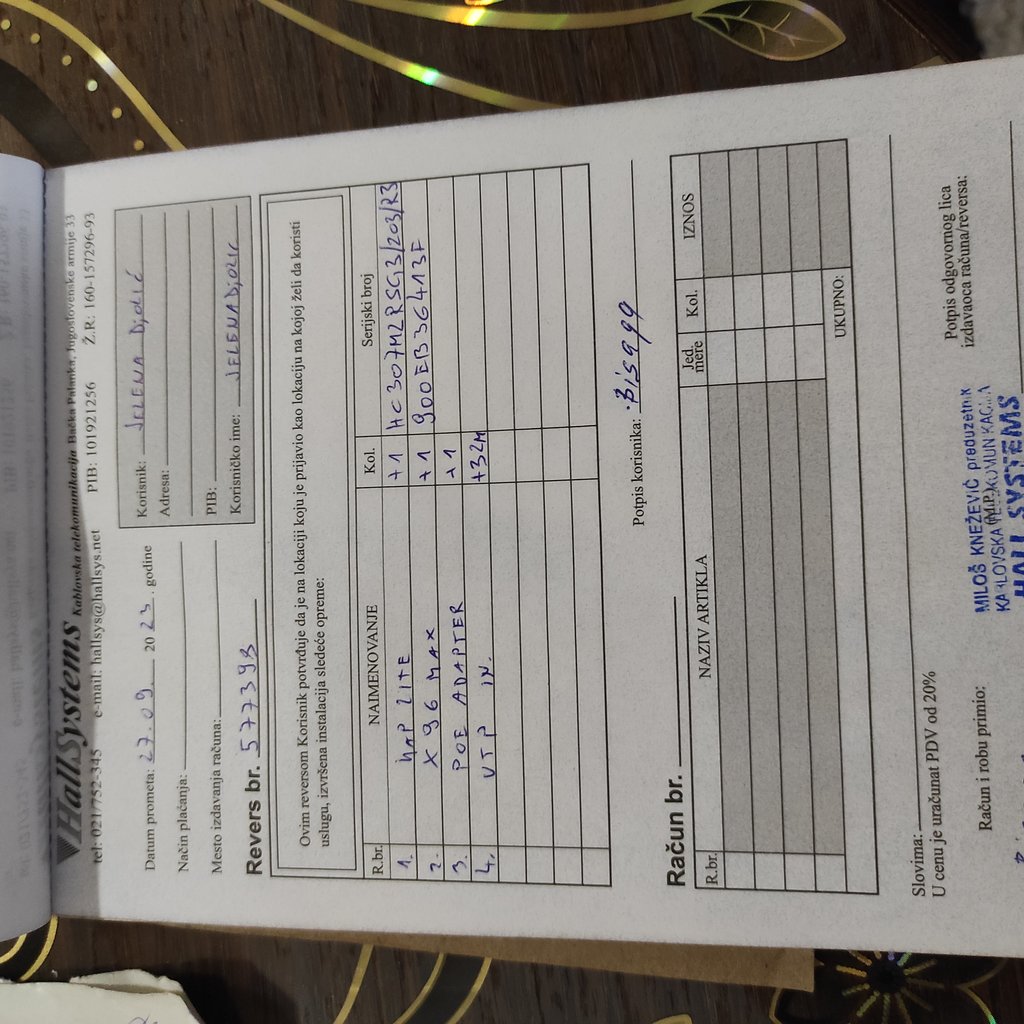 HallSystems Kablovska telekomunikacija Bačka Palanka, Jugoslovenske armije 33
tel: 021/752-345 e-mail: hallsys@hallsys.net PIB: 101921256 Ž.R: 160-157296-93
Datum prometa: 27.09. 2023. godine
Način plaćanja:
Mesto izdavanja računa:
Korisnik: JELENA
Adresa:
PIB:
Korisničko ime: JELENA
Revers br. 577393
Ovim reversom Korisnik potvrđuje da je na lokaciji koju je prijavio kao lokaciju na kojoj želi da koristi
uslugu, izvršena instalacija sledeće opreme:
R.br. NAIMENOVANJE Kol. Serijski broj
1. HAP LITE +1 HC307M2RSG13/203/R3
2. X 96 MAX +1 900EB36413F
3. POE ADAPTER +1
4. UTP IN. +32M
Potpis korisnika:
Račun br.
R.br. NAZIV ARTIKLA Jed. mere Kol. IZNOS
UKUPNO:
Slovima:
U cenu je uračunat PDV od 20%
Račun i robu primio:
Potpis odgovornog lica
izdavaoca računa/reversa:
(M.P.)
MILOŠ KNEŽEVIĆ preduzetnik
KABLOVSKA TELEKOMUNIKACIJA
HALL SYSTEMS